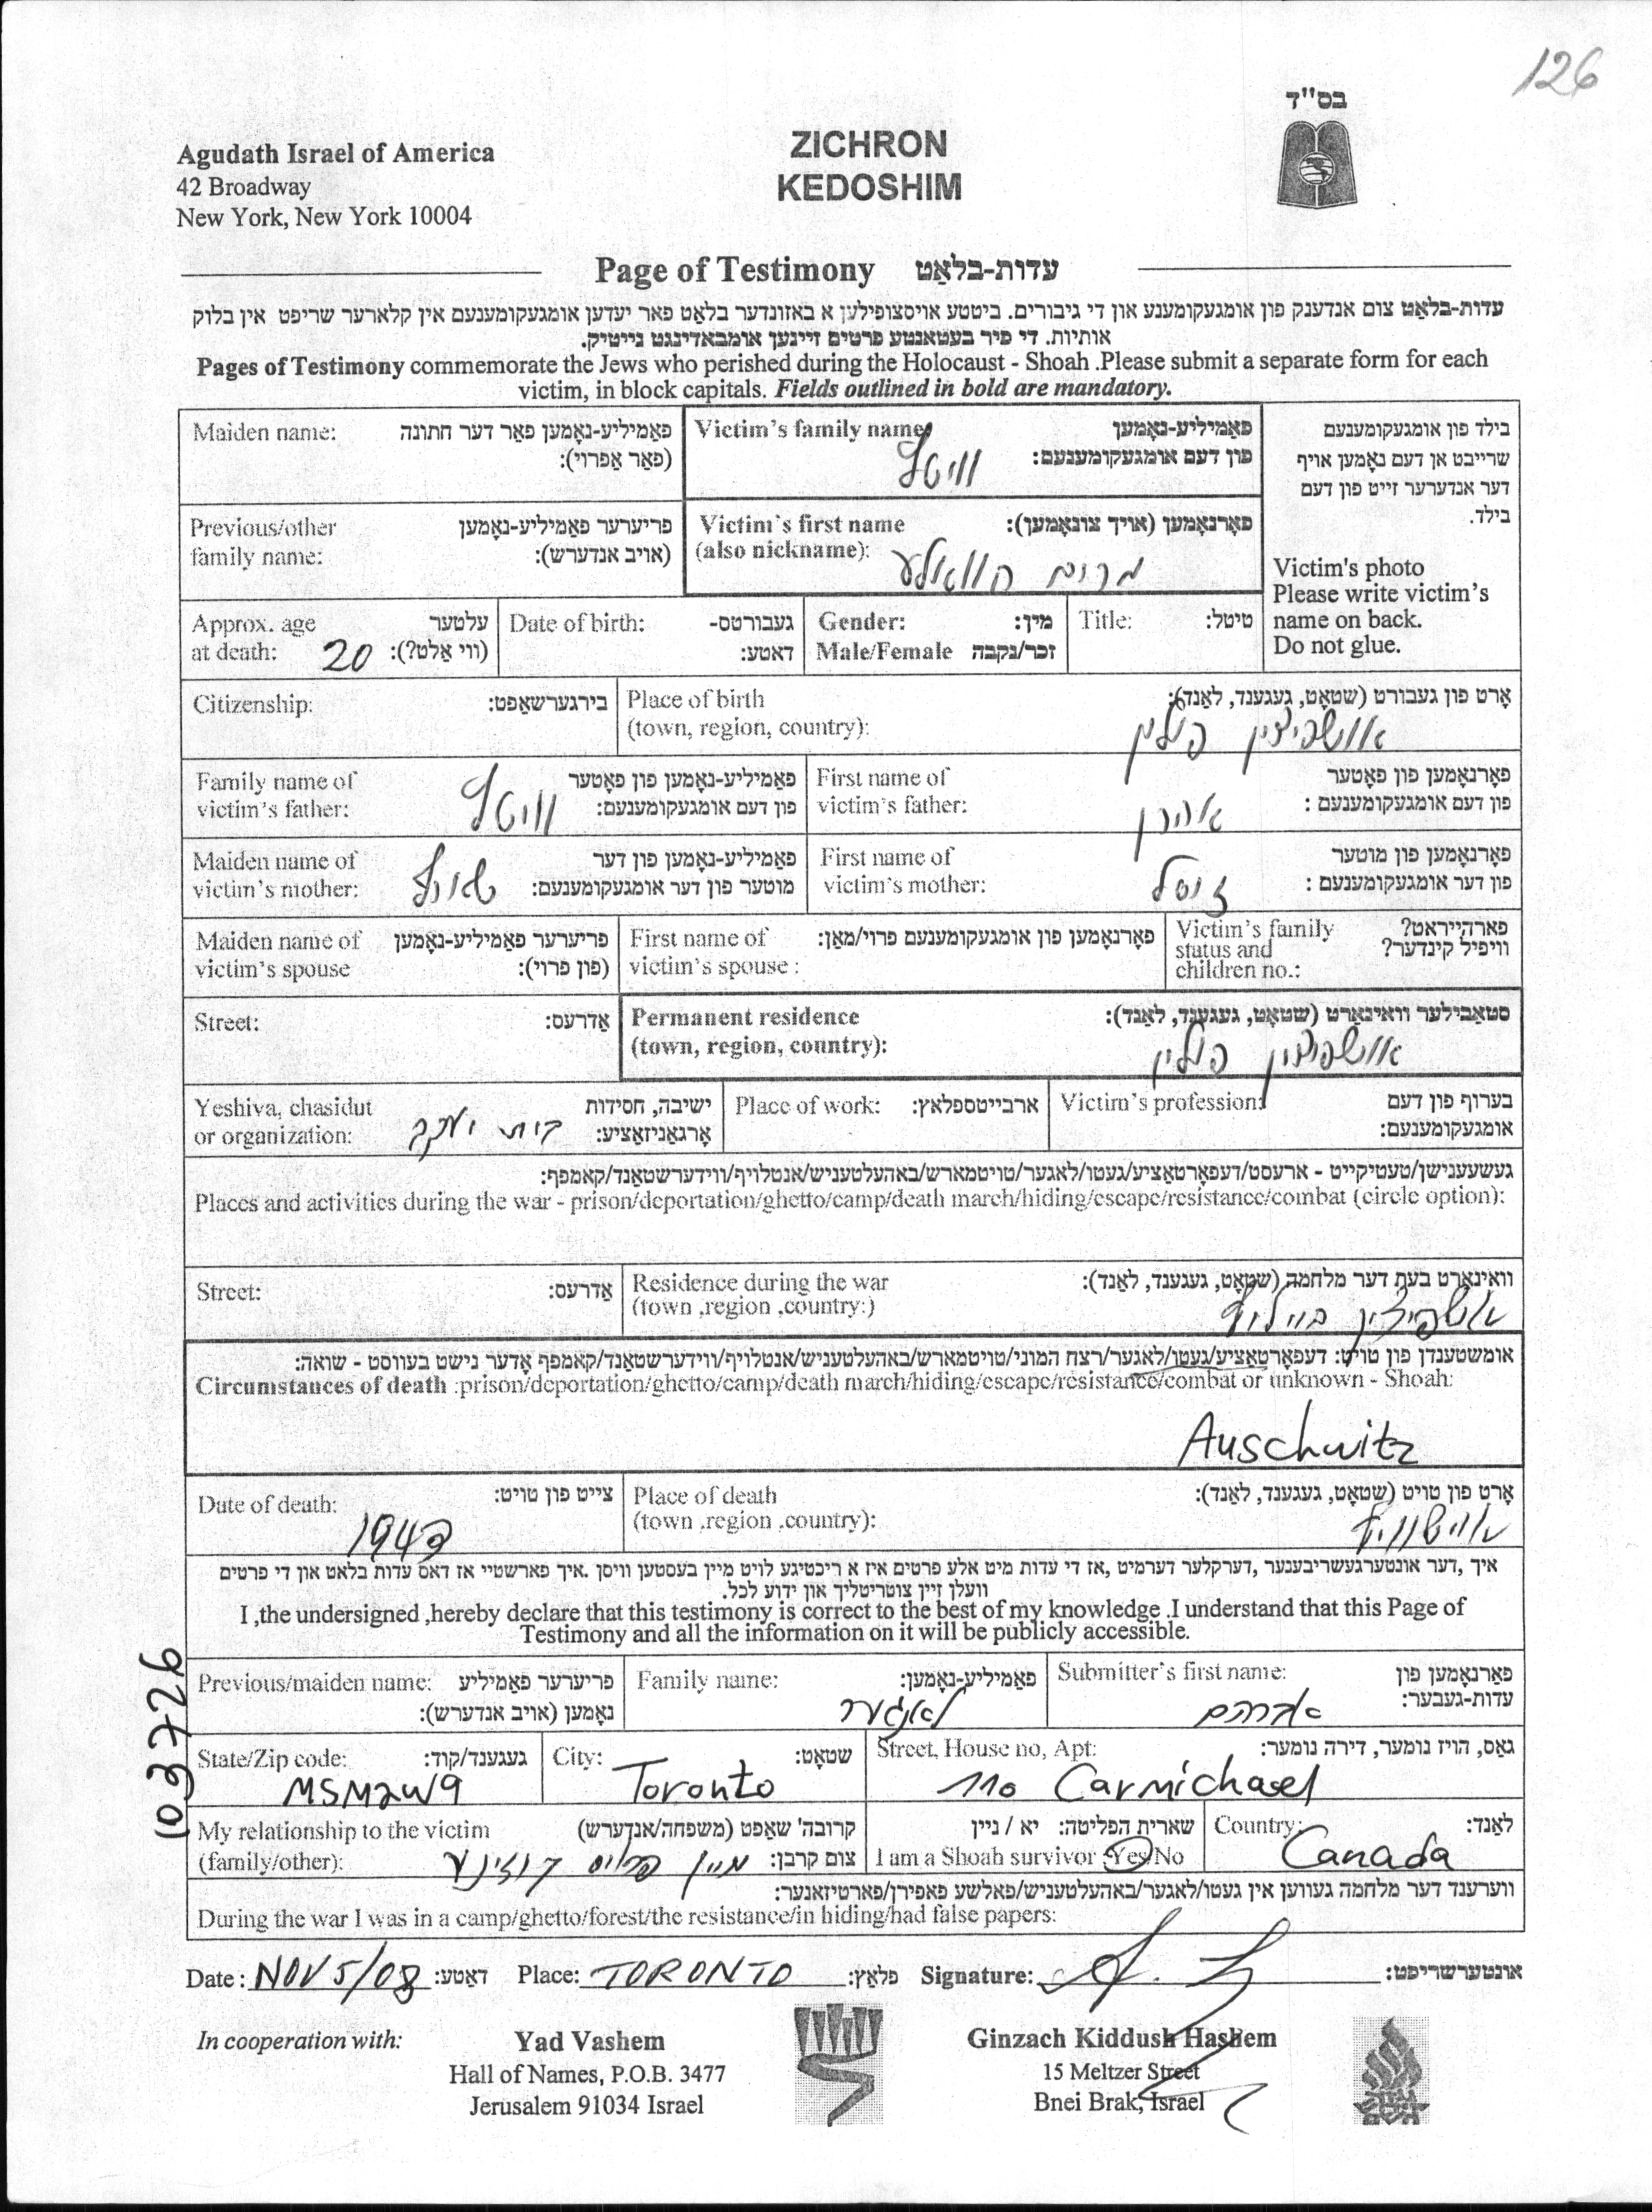 126
בס"ד
Agudath Israel of America
42 Broadway
New York, New York 10004
ZICHRON
KEDOSHIM
Page of Testimony עדות-בלאַט
עדות-בלאַט צום אנדענק פון אומגעקומענע און די גיבורים. ביטטע אויסצופילען א באזונדער בלאט פאר יעדען אומגעקומענעם אין קלארער שריפט אין בלוק
אותיות. די פיר בעטאנטע פרטים זיינען אומבאדינגט נייטיק.
Pages of Testimony commemorate the Jews who perished during the Holocaust - Shoah .Please submit a separate form for each
victim, in block capitals. Fields outlined in bold are mandatory.
Maiden name: פאַמיליע-נאָמען פאַר דער חתונה
(פאַר אַפרוי):
Victim's family name: פאַמיליע-נאָמען
פון דעם אומגעקומענעם:
וויטל
בילד פון אומגעקומענעם
שרייבט אן דעם נאָמען אויף
דער אנדערער זייט פון דעם
בילד.
Victim's photo
Please write victim's
name on back.
Do not glue.
Previous/other פריערער פאַמיליע-נאָמען
family name: (אויב אנדערש):
Victim's first name פאָרנאָמען (אויך צונאָמען):
(also nickname):
מרים
Approx. age עלטער
at death: 20 (ווי אַלט?):
Date of birth: געבורטס-
דאטע:
Gender: מין:
Male/Female זכר/נקבה
Title: טיטל:
Citizenship: בירגערשאַפט:
Place of birth אָרט פון געבורט (שטאָט, געגענד, לאַנד):
(town, region, country):
אושפיצין פולין
Family name of פאַמיליע-נאָמען פון פאָטער
victim's father: פון דעם אומגעקומענעם:
וויטל
First name of פאָרנאָמען פון פאָטער
victim's father: פון דעם אומגעקומענעם :
אהרן
Maiden name of פאַמיליע-נאָמען פון דער
victim's mother: מוטער פון דער אומגעקומענעם:
First name of פאָרנאָמען פון מוטער
victim's mother: פון דער אומגעקומענעם :
זיסל
Maiden name of פריערער פאַמיליע-נאָמען
victim's spouse (פון פרוי):
First name of פאָרנאָמען פון אומגעקומענעם פרוי/מאַן:
victim's spouse :
Victim's family פארהייראט?
status and וויפיל קינדער?
children no.:
Street: אַדרעס:
Permanent residence סטאַבילער וואוינאָרט (שטאָט, געגענד, לאַנד):
(town, region, country):
אושפיצין פולין
Yeshiva, chasidut ישיבה, חסידות
or organization: אָרגאַניזאַציע:
בית יעקב
Place of work: ארבייטספלאץ:
Victim's profession: בערוף פון דעם
אומגעקומענעם:
געשעענישן/טעטיקייט - ארעסט/דעפאָרטאַציע/געטו/לאַגער/טויטמארש/באַהעלטעניש/אנטלויף/ווידערשטאַנד/קאמפף:
Places and activities during the war - prison/deportation/ghetto/camp/death march/hiding/escape/resistance/combat (circle option):
Street: אַדרעס:
Residence during the war וואוינאָרט בעת דער מלחמה (שטאָט, געגענד, לאַנד):
(town ,region ,country:)
אומשטענדן פון טויט: דעפאָרטאַציע/געטו/לאַגער/רצח המוני/טויטמארש/באַהעלטעניש/אנטלויף/ווידערשטאַנד/קאמפף אָדער נישט בעוווסט - שואה:
Circumstances of death :prison/deportation/ghetto/camp/death march/hiding/escape/resistance/combat or unknown - Shoah:
Auschwitz
Date of death: צייט פון טויט:
1943
Place of death אָרט פון טויט (שטאָט, געגענד, לאַנד):
(town ,region ,country):
איך ,דער אונטערגעשריבענער ,דערקלער דערמיט ,אז די עדות מיט אלע פרטים איז א ריכטיגע לויט מיין בעסטען וויסן .איך פארשטיי אז דאס עדות בלאט און די פרטים
וועלן זיין צוטריטליך און ידוע לכל.
I ,the undersigned ,hereby declare that this testimony is correct to the best of my knowledge .I understand that this Page of
Testimony and all the information on it will be publicly accessible.
103726
Previous/maiden name: פריערער פאַמיליע
נאָמען (אויב אנדערש):
Family name: פאַמיליע-נאָמען:
לאנגער
Submitter's first name: פאַרנאָמען פון
עדות-געבער:
אברהם
State/Zip code: געגענד/קוד:
M5M2W9
City: שטאָט:
Toronto
Street, House no, Apt: גאַס, הויז נומער, דירה נומער:
110 Carmichael
My relationship to the victim קרובה' שאַפט (משפחה/אנדערש)
(family/other): צום קרבן:
מיין קוזינע
שארית הפליטה: יא / ניין
I am a Shoah survivor :Yes/No
Country: לאַנד:
Canada
ווערענד דער מלחמה געווען אין געטו/לאַגער/באַהעלטעניש/פאלשע פאפירן/פארטיזאנער:
During the war I was in a camp/ghetto/forest/the resistance/in hiding/had false papers:
Date: NOV 5/08 דאַטע: Place: TORONTO פלאַץ: Signature: אונטערשריפט:
In cooperation with:
Yad Vashem
Hall of Names, P.O.B. 3477
Jerusalem 91034 Israel
Ginzach Kiddush Hashem
15 Meltzer Street
Bnei Brak, Israel